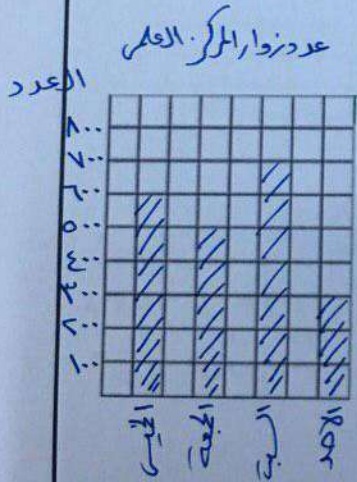 عدد زوار المركز العلمي
العدد
٨٠٠
٧٠٠
٦٠٠
٥٠٠
٤٠٠
٣٠٠
٢٠٠
١٠٠
الخميس
الجمعة
السبت
الأحد